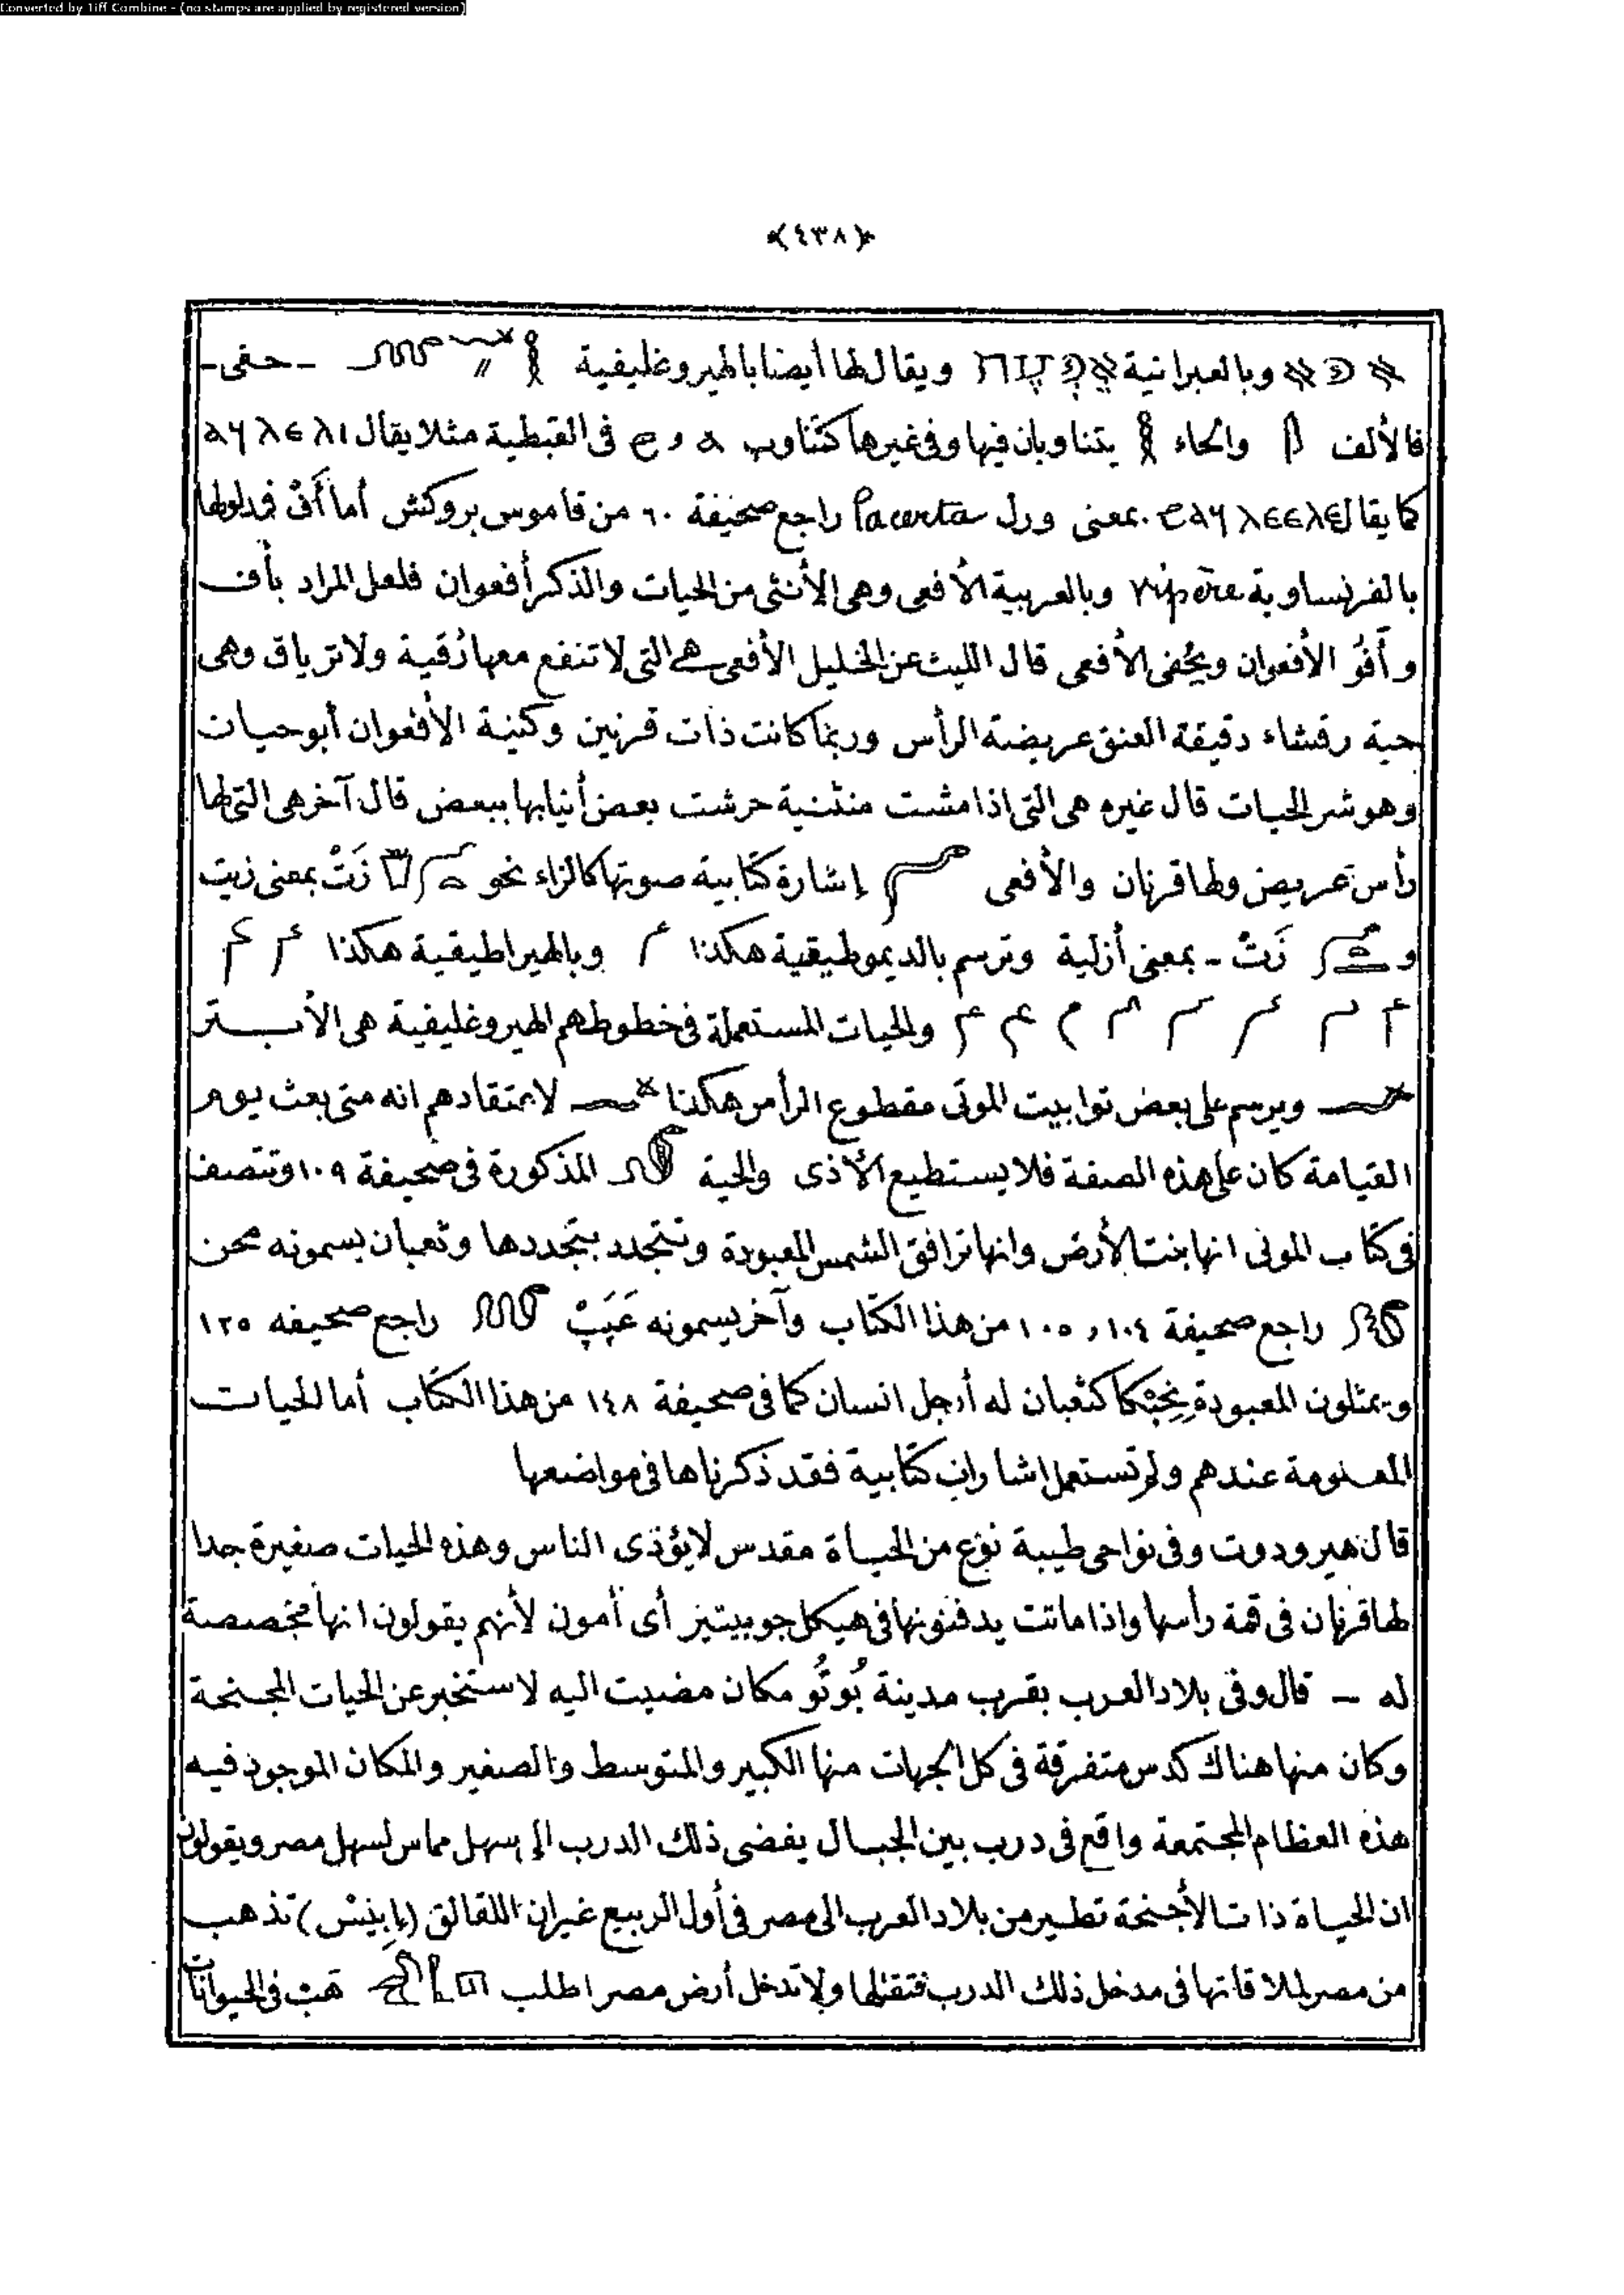 Converted by Tiff Combine - (no stamps are applied by registered version)
﴿٤٣٨﴾
وبالعبرانية ويقال لها أيضا بالهيروغليفية - حفى -
فالألف والحاء يتناوبان فيها وفى غيرها كتناوب ⲁ و ϩ فى القبطية مثلا يقال
كما يقال بمعنى ورل Lacerta راجع صحيفة ٦٠ من قاموس بروكش أما أَفْ فمدلولها
بالفرنساوية Vipère وبالعربية الأفعى وهى الأنثى من الحيات والذكر أفعوان فلعل المراد بأف
وأَفُو الأفعوان وبحُفى الأفعى قال الليث عن الخليل الأفعى هى التى لا تنفع معها رُقية ولا ترياق وهى
حية رقشاء دقيقة العنق عريضة الرأس وربما كانت ذات قرنين وكنية الأفعوان أبو حيات
وهو شر الحيات قال غيره هى التى اذا مشت منثنية حرشت بعض أنيابها ببعض قال آخر هى التى لها
رأس عريض ولها قرنان والأفعى إشارة كتابية صوتها كالزاء نحو زَتْ بمعنى زيت
و زَتْ - بمعنى أزلية وترسم بالديموطيقية هكذا وبالهيراطيقية هكذا
والحيات المستعملة فى خطوطهم الهيروغليفية هى الأبتر
ويرسم على بعض توابيت الموتى مقطوع الرأس هكذا لاعتقادهم انه متى بعث يوم
القيامة كان على هذه الصفة فلا يستطيع الأذى والحية المذكورة فى صحيفة ١٠٩ وتتصف
فى كتاب الموتى انها بنت الأرض وانها ترافق الشمس المعبودة وتتجدد بتجددها وثعبان يسمونه محن
راجع صحيفة ١٠٤ و ١٠٥ من هذا الكتاب وآخر يسمونه عَپَپْ راجع صحيفه ١٢٥
ويمثلون المعبودة نِحِبْكا كثعبان له أرجل انسان كما فى صحيفة ١٤٨ من هذا الكتاب أما الحيات
المعلومة عندهم ولم تستعمل اشارات كتابية فقد ذكرناها فى مواضعها
قال هيرودوت وفى نواحى طيبة نوع من الحياة مقدس لا يؤذى الناس وهذه الحيات صغيرة جدا
لها قرنان فى قمة رأسها واذا ماتت يدفنونها فى هيكل جوبيتير أى أمون لأنهم يقولون انها مخصصة
له - قال وفى بلاد العرب بقرب مدينة بُوتُو مكان مضيت اليه لاستخبر عن الحيات المجنحة
وكان منها هناك كدس متفرقة فى كل الجهات منها الكبير والمتوسط والصغير والمكان الموجود فيه
هذه العظام المجتمعة واقع فى درب بين الجبال يفضى ذلك الدرب الى سهل مماس لسهل مصر ويقولون
ان الحياة ذات الأجنحة تطير من بلاد العرب الى مصر فى أول الربيع غير ان اللقالق (إِبِيْس) تذهب
من مصر لملاقاتها فى مدخل ذلك الدرب فتقتلها ولا تدخل أرض مصر اطلب هَبْ فى الحيوانات